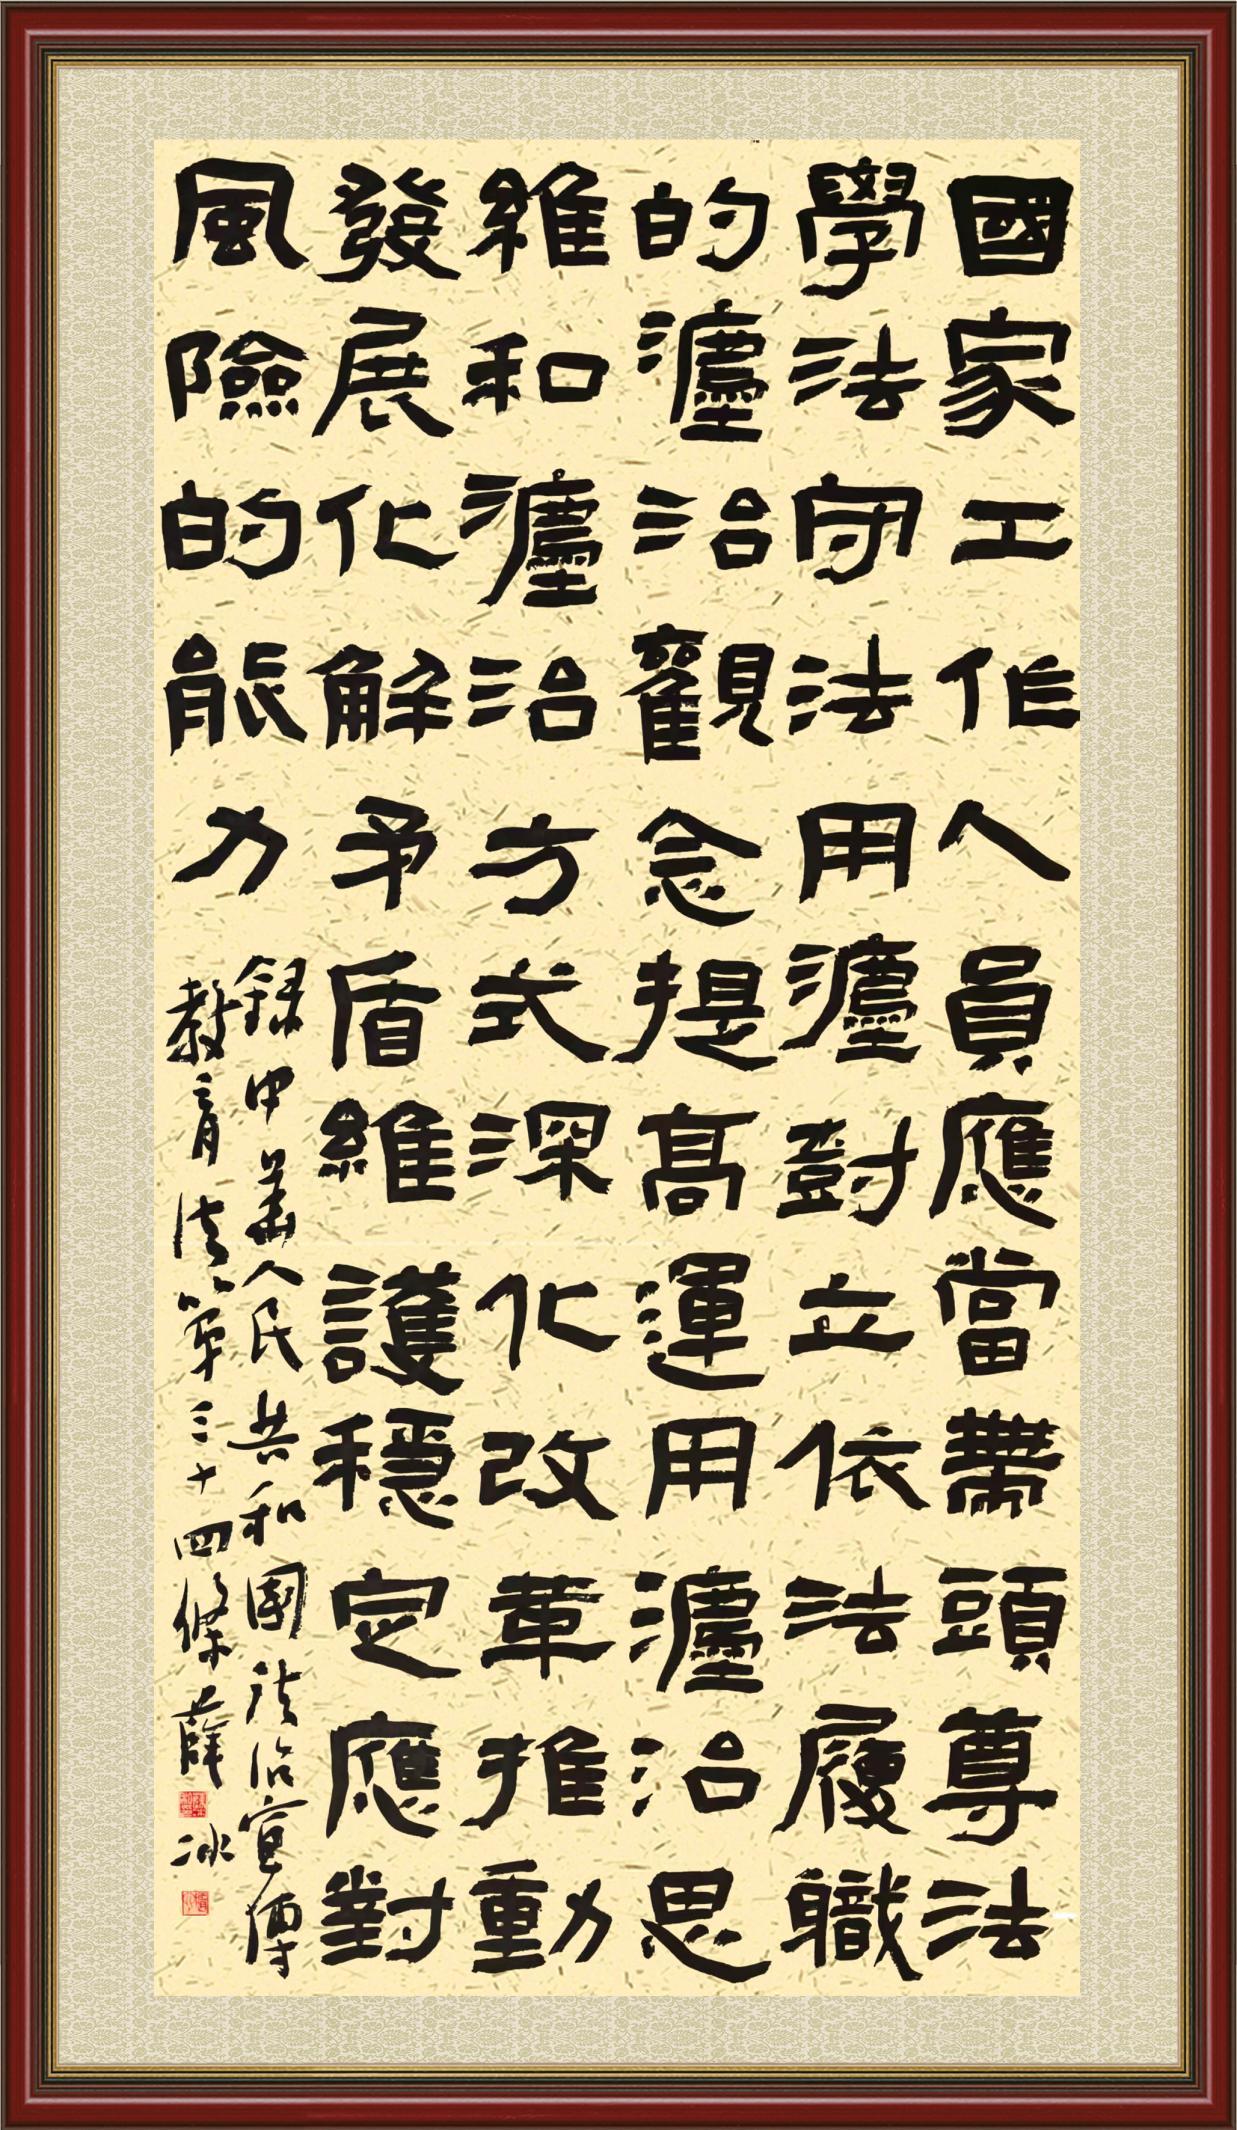 國家工作人員應當帶頭尊法
學法守法用灋尌立依法履職
的灋治觀念提高運用灋治思
維和灋治方式深化改革推動
發展化解矛盾維護穩定應對
風險的能力
錄中華人民共和國法治宣傳
教育法第三十四條薛冰